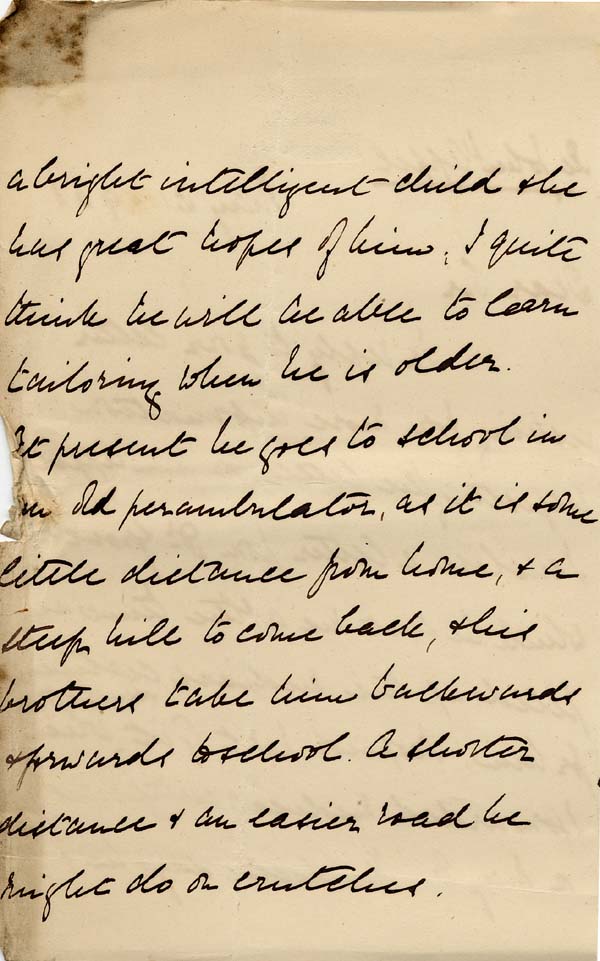 a bright intelligent child & he
has great hopes of him; I quite
think he will be able to learn
tailoring when he is older.
At present he goes to school in
an old perambulator, as it is some
little distance from home, & a
steep hill to come back, & his
brothers take him backwards
& forwards to school. A shorter
distance & an easier road he
might do on crutches.